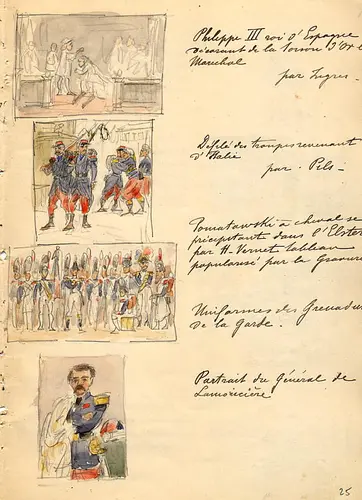 Philippe III roi d'Espagne
décorant de la Toison d'Or le
Marechal
par Ingres
Défilé des troupes revenant
d'Italie
par Pils
Poniatowski à cheval se
précipitant dans l'Elster
par H. Vernet tableau
popularisé par la Gravure
Uniformes des Grenadiers
de la Garde.
Portrait du Général de
Lamoricière
25